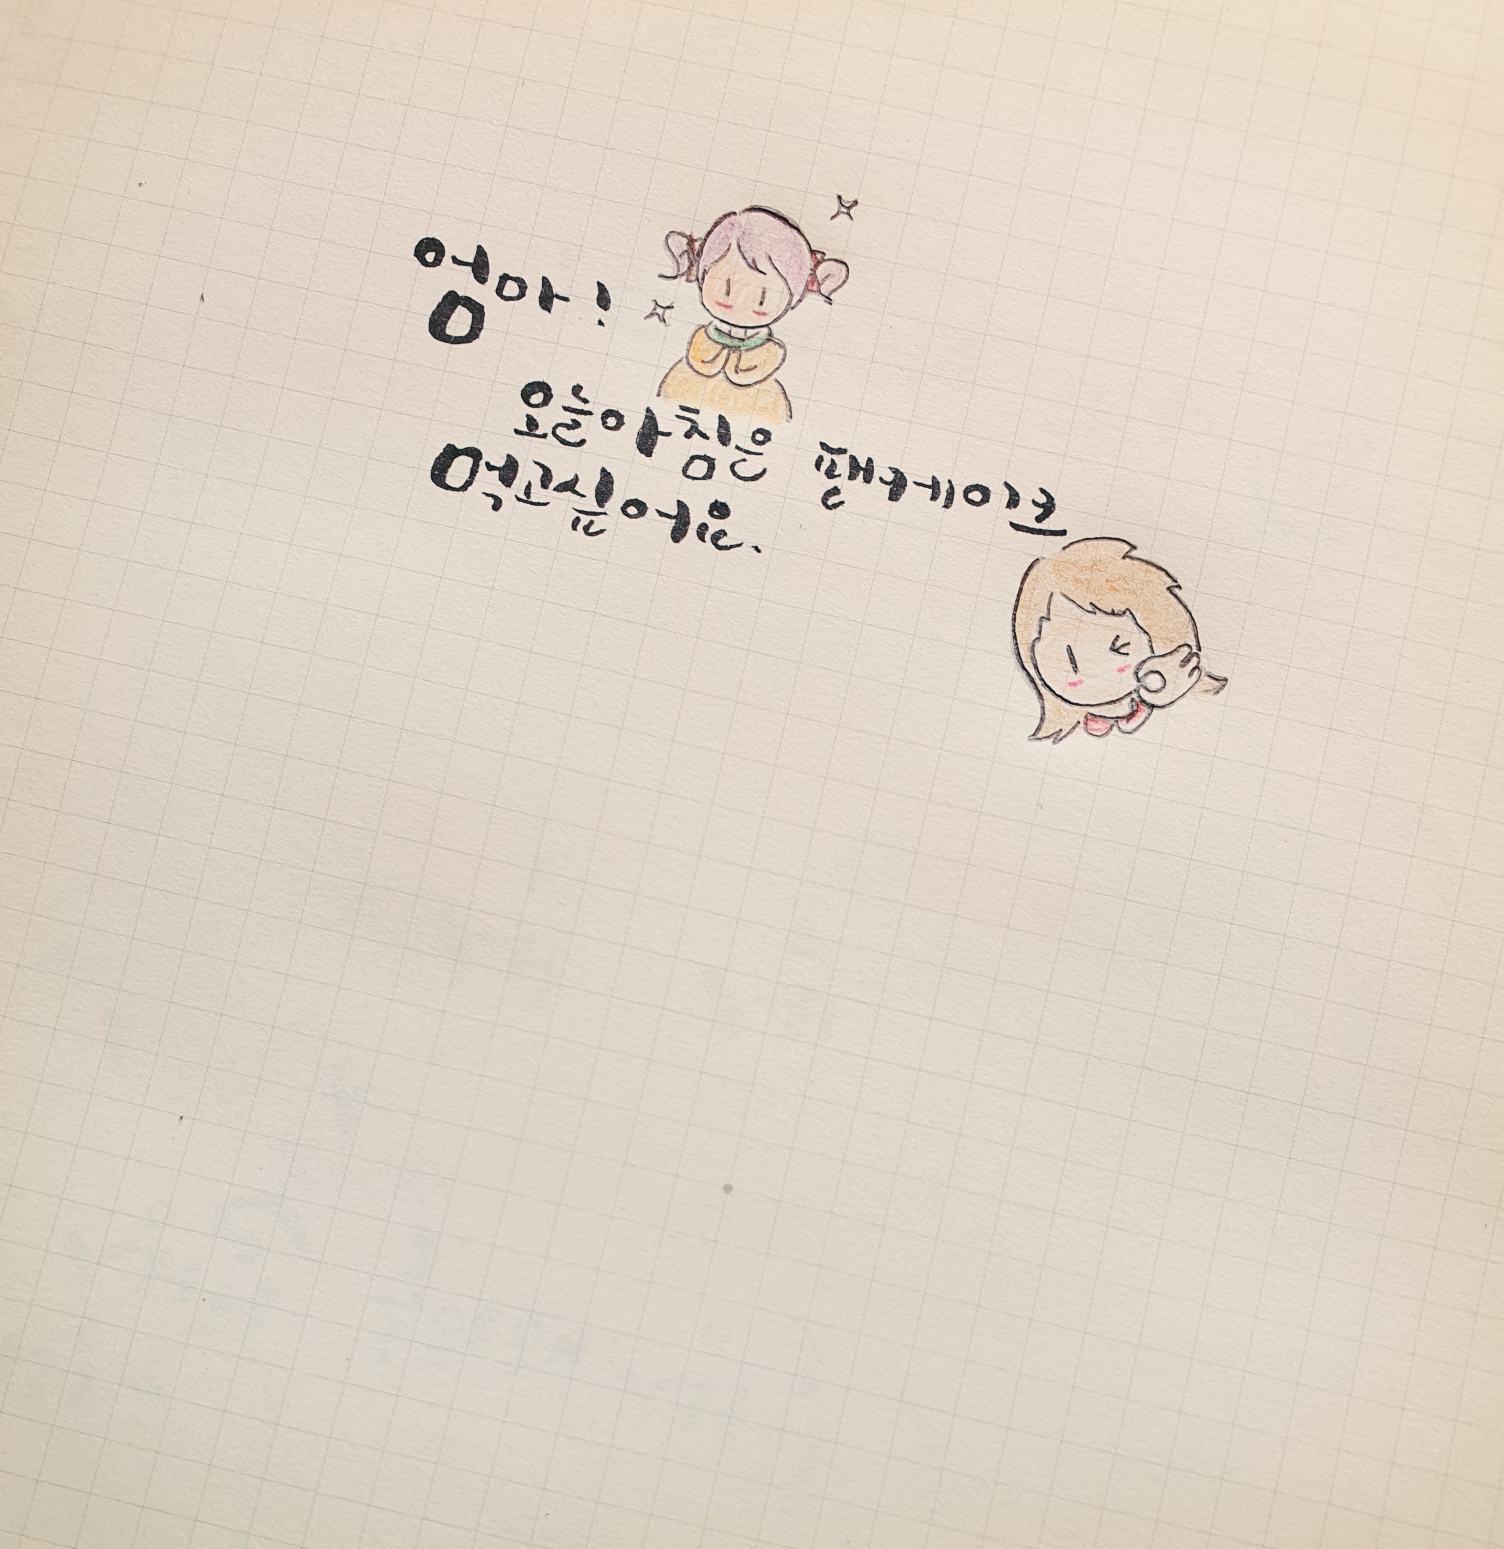 엄마!
오늘아침은 팬케이크
먹고싶어요.